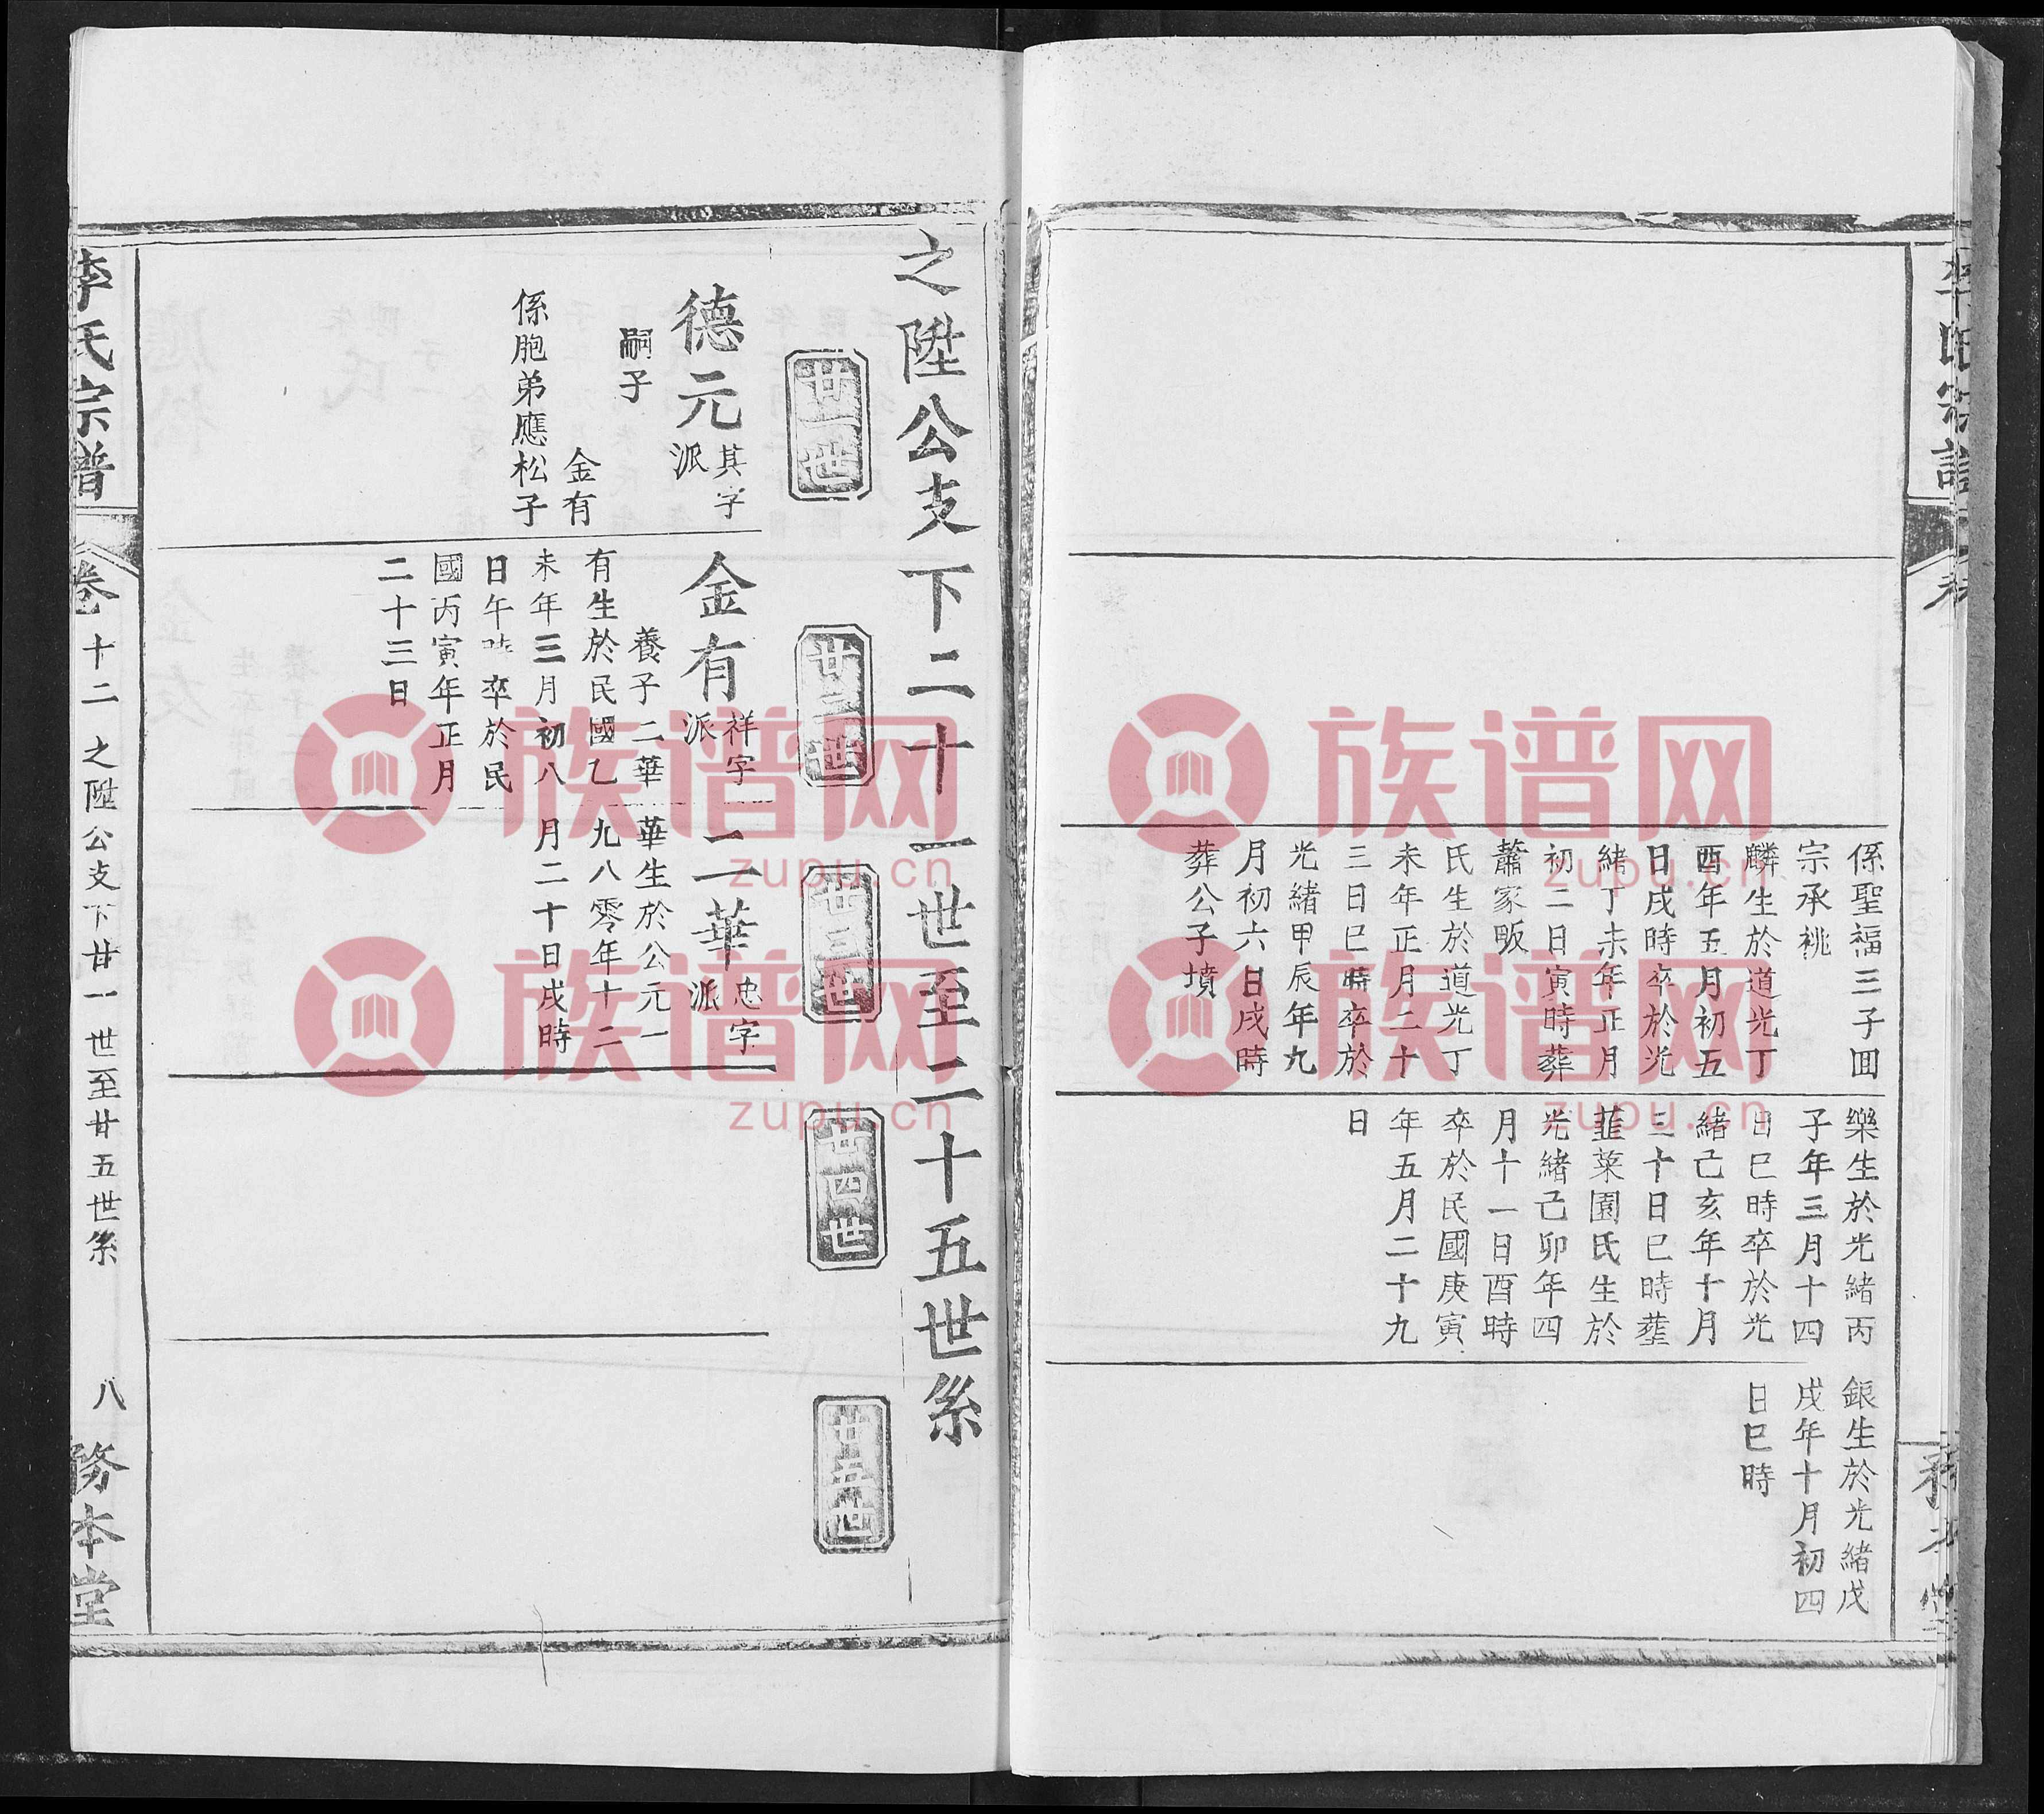 係聖福三子回
宗承祧
麟生於道光丁
酉年五月初五
日戌時卒於光
緒丁未年正月
初二日寅時葬
蕭家畈
氏生於道光丁
未年正月二十
三日巳時卒於
光緒甲辰年九
月初六日戌時
葬公子墳
樂生於光緒丙
子年三月十四
日巳時卒於光
緒己亥年十月
三十日巳時塟
韮菜園氏生於
光緒己卯年四
月十一日酉時
卒於民國庚寅
年五月二十九
日
銀生於光緒戊
戌年十月初四
日巳時
之陞公支下二十一世至二十五世系
廿一世
廿二世
廿三世
廿四世
廿五世
德元
其字
派
嗣子
金有
係胞弟應松子
金有
祥字
派
養子二華
有生於民國乙
未年三月初八
日午時卒於民
國丙寅年正月
二十三日
二華
忠字
派
華生於公元一
九八零年十二
月二十日戌時
李氏宗譜
卷十二
之陞公支下廿一世至廿五世系
八
務本堂
族谱网
zupu.cn
族谱网
zupu.cn
族谱网
zupu.cn
族谱网
zupu.cn